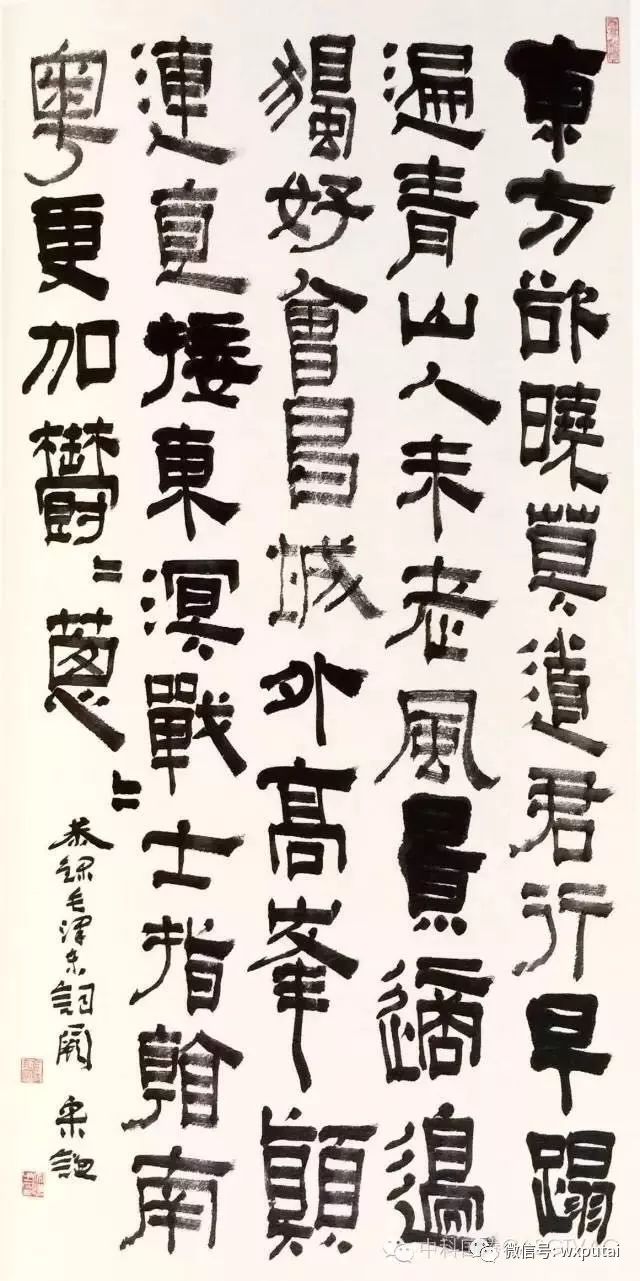 東方欲曉莫道君行早蹋
遍青山人未老風景適邊
獨好會昌城外高峯顛
連直接東溟戰士指看南
粵更加鬱〻蔥〻
恭錄毛澤東詞闋
微信号: wxputai